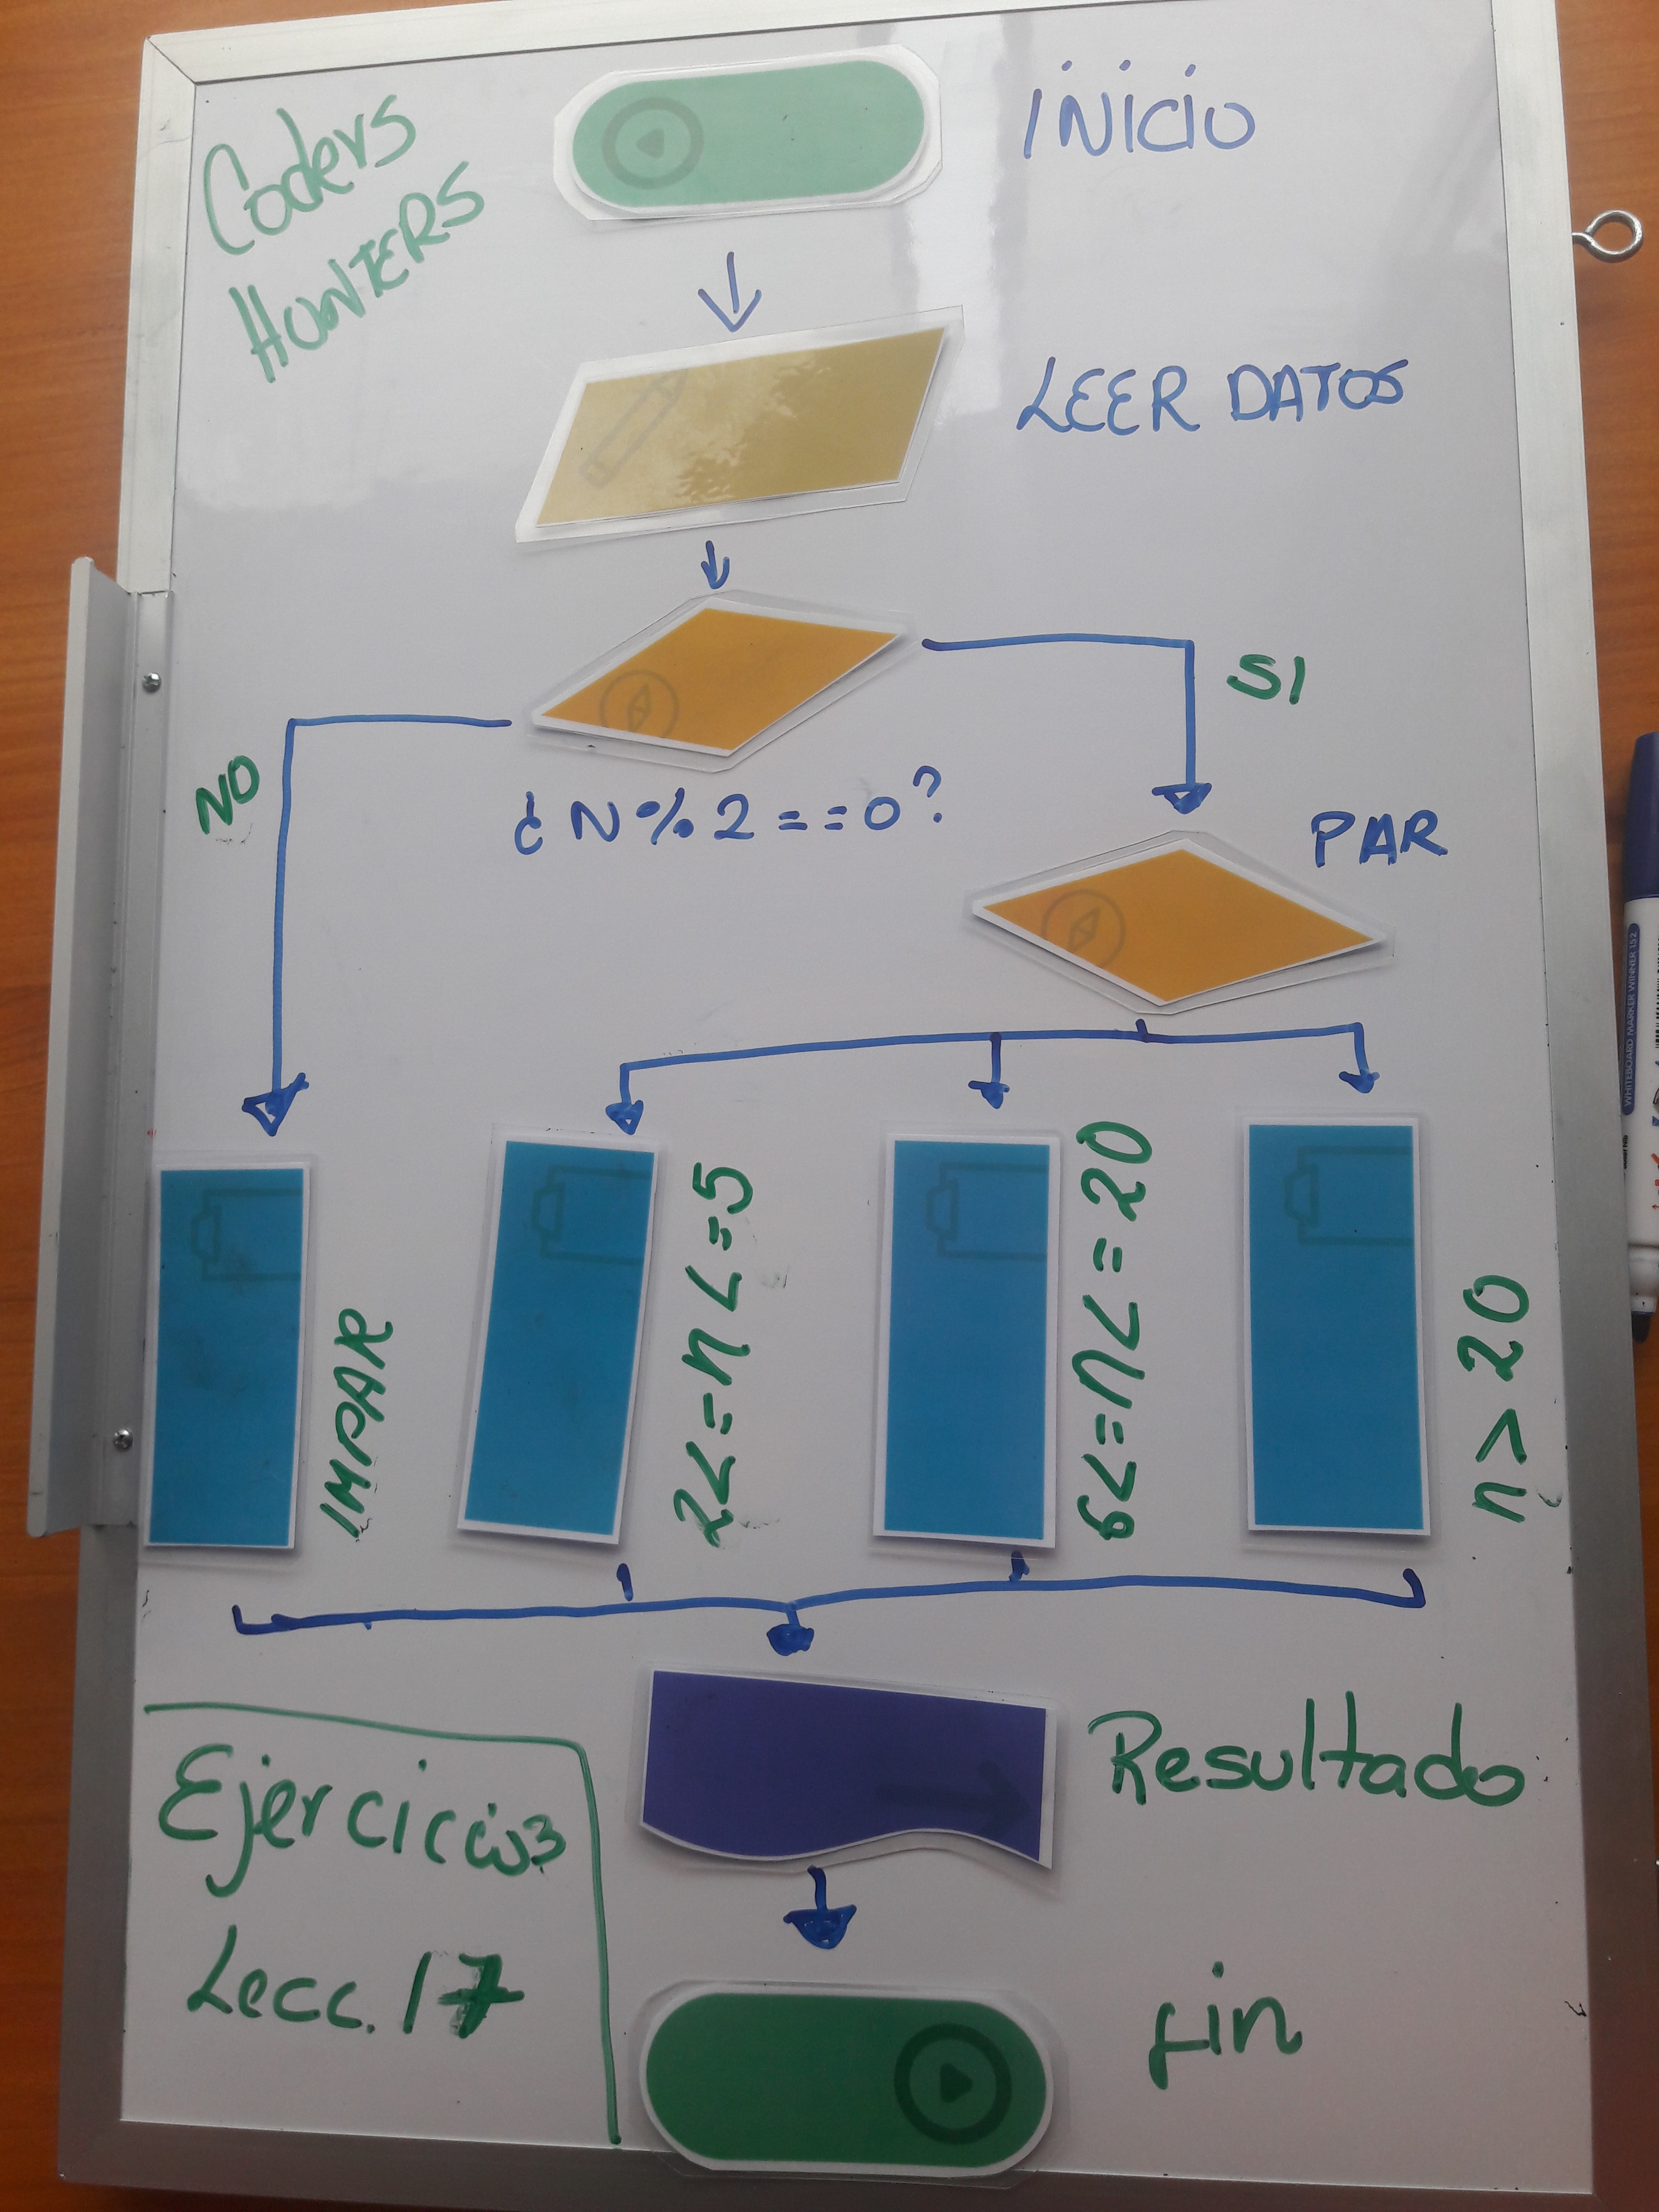 Coders
HUNTERS
INICIO
LEER DATOS
SI
NO
¿N%2==0?
PAR
IMPAR
2<=n<=5
6<=n<=20
n>20
Resultado
Ejercicio3
Lecc. 17
fin
WHITEBOARD MARKER WINNER 152